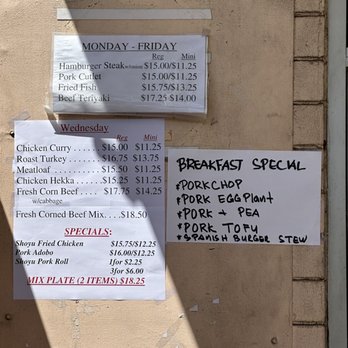 MONDAY - FRIDAY
Reg Mini
Hamburger Steak $15.00/$11.25
Pork Cutlet $15.00/$11.25
Fried Fish $15.75/$13.25
Beef Teriyaki $17.25 $14.00
Wednesday
Reg Mini
Chicken Curry . . . . . . $15.00 $11.25
Roast Turkey . . . . . . . $16.75 $13.75
Meatloaf . . . . . . . $15.50 $11.25
Chicken Hekka . . . . . $15.25 $11.25
Fresh Corn Beef . . . . $17.75 $14.25
w/cabbage
Fresh Corned Beef Mix. . . .$18.50
SPECIALS:
Shoyu Fried Chicken $15.75/$12.25
Pork Adobo $16.00/$12.25
Shoyu Pork Roll 1for $2.25
3for $6.00
MIX PLATE (2 ITEMS) $18.25
BREAKFAST SPECIAL
*PORKCHOP
*PORK EGGPlant
*PORK + PEA
*PORK TOFU
*SPANISH BURGER STEW